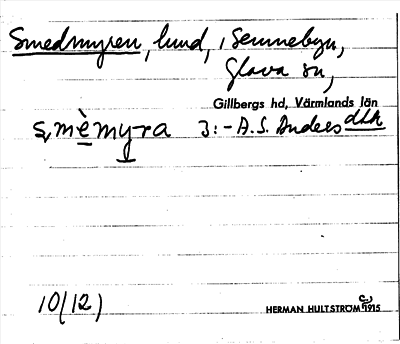 Smedmyren, lund, i Sennebyn,
Glava sn,
Gillbergs hd, Värmlands län
smèmyra 3:- A.S. Anders dtr
10(12)
HERMAN HULTSTRÖM C 1915